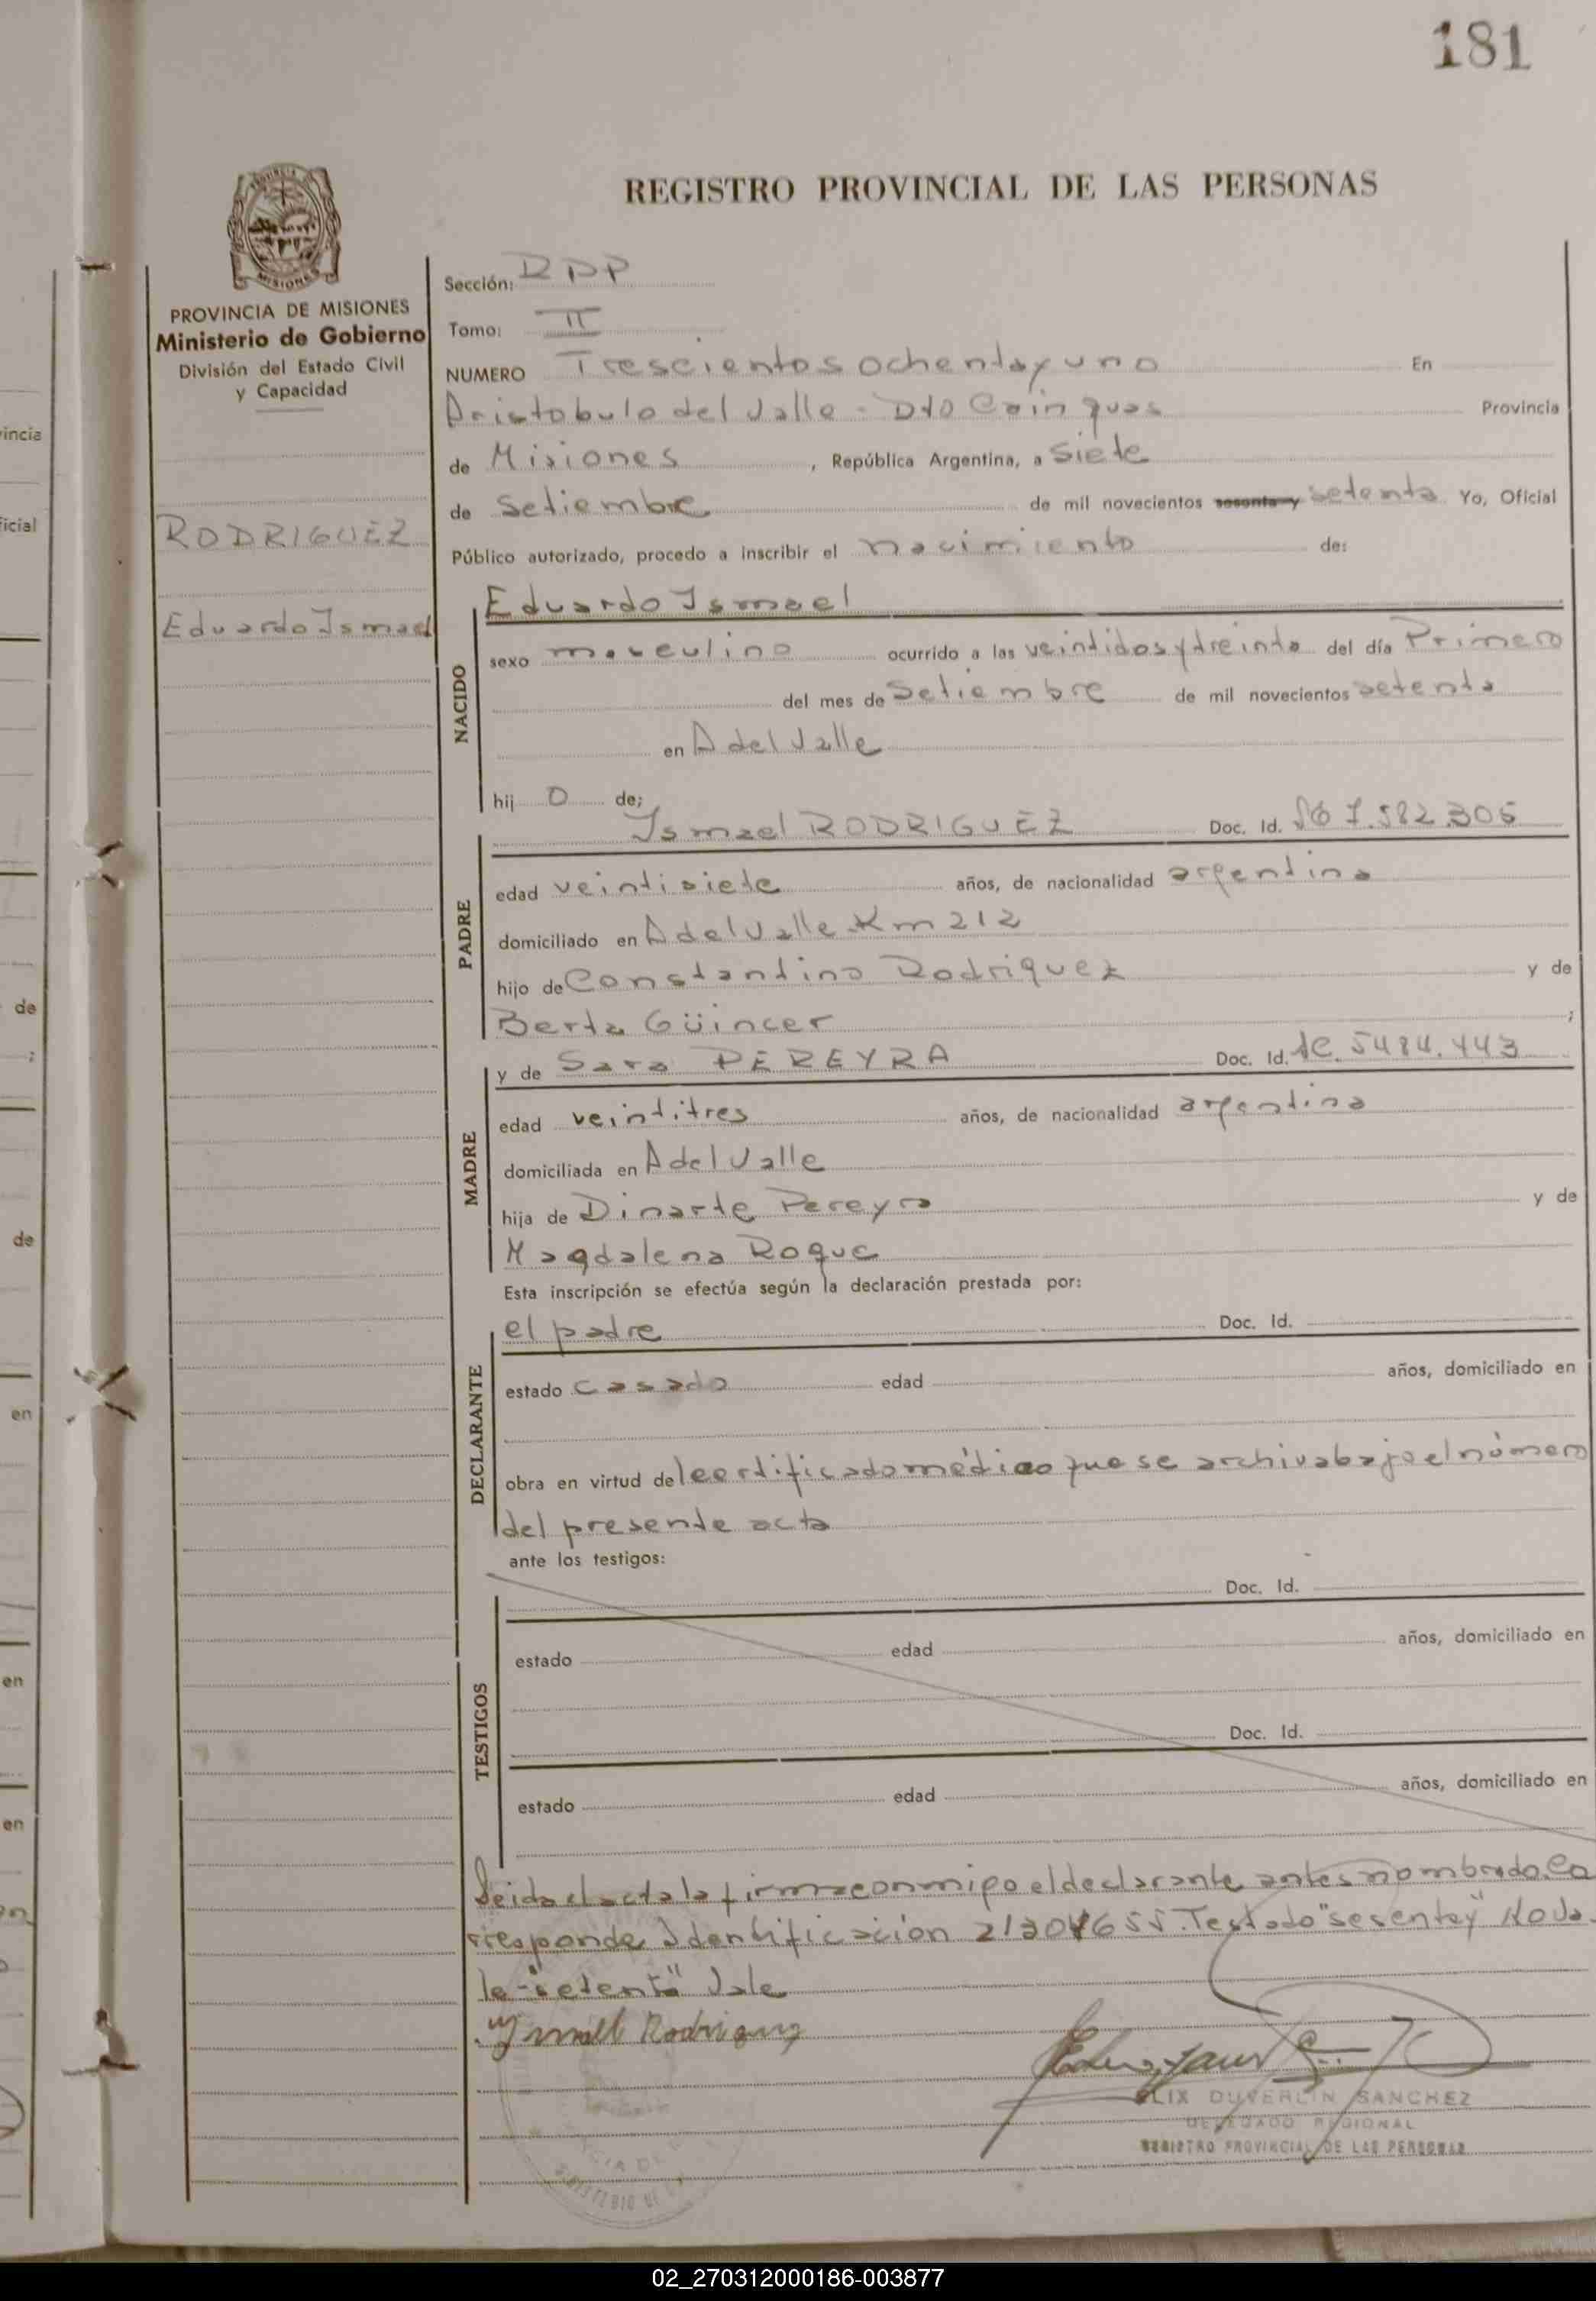 181
REGISTRO PROVINCIAL DE LAS PERSONAS
PROVINCIA DE MISIONES
Ministerio de Gobierno
División del Estado Civil
y Capacidad
RODRIGUEZ
Eduardo Ismael
Sección: RDP
Tomo: II
NUMERO Trescientos ochenta y uno En
Aristobulo del Valle - Dto Cainguas Provincia
de Misiones, República Argentina, a siete
de setiembre de mil novecientos sesenta y setenta Yo, Oficial
Público autorizado, procedo a inscribir el nacimiento de:
NACIDO
Eduardo Ismael
sexo masculino ocurrido a las veintidos y treinta del día Primero
del mes de setiembre de mil novecientos setenta
en A del Valle
hij o de;
PADRE
Ismael RODRIGUEZ Doc. Id. 7.582.305
edad veintisiete años, de nacionalidad argentina
domiciliado en A del Valle Km 212
hijo de Constantino Rodriguez y de
Berta Güincer ;
MADRE
y de Sara PEREYRA Doc. Id. 5484.443
edad veintitres años, de nacionalidad argentina
domiciliada en A del Valle
hija de Dinarte Pereyra y de
Magdalena Roque
Esta inscripción se efectúa según la declaración prestada por:
DECLARANTE
el padre Doc. Id.
estado casado edad años, domiciliado en
obra en virtud del certificado médico que se archiva bajo el número
del presente acta
ante los testigos:
TESTIGOS
Doc. Id.
estado edad años, domiciliado en
Doc. Id.
estado edad años, domiciliado en
Leida el acta la firma conmigo el declarante antes nombrado. Co
rresponde Identificación 21204655. Testado "sesenta y" No Va-
le - "setenta" Vale
Ismael Rodriguez
FELIX DUVERLIN SANCHEZ
DELEGADO REGIONAL
REGISTRO PROVINCIAL DE LAS PERSONAS
02_270312000186-003877